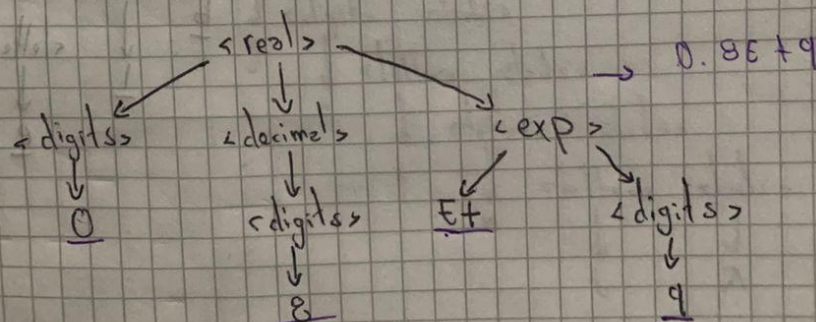 <real>
→ 0.8E+9
<digits> <decimal> <exp>
0 <digits> E+ <digits>
8 9